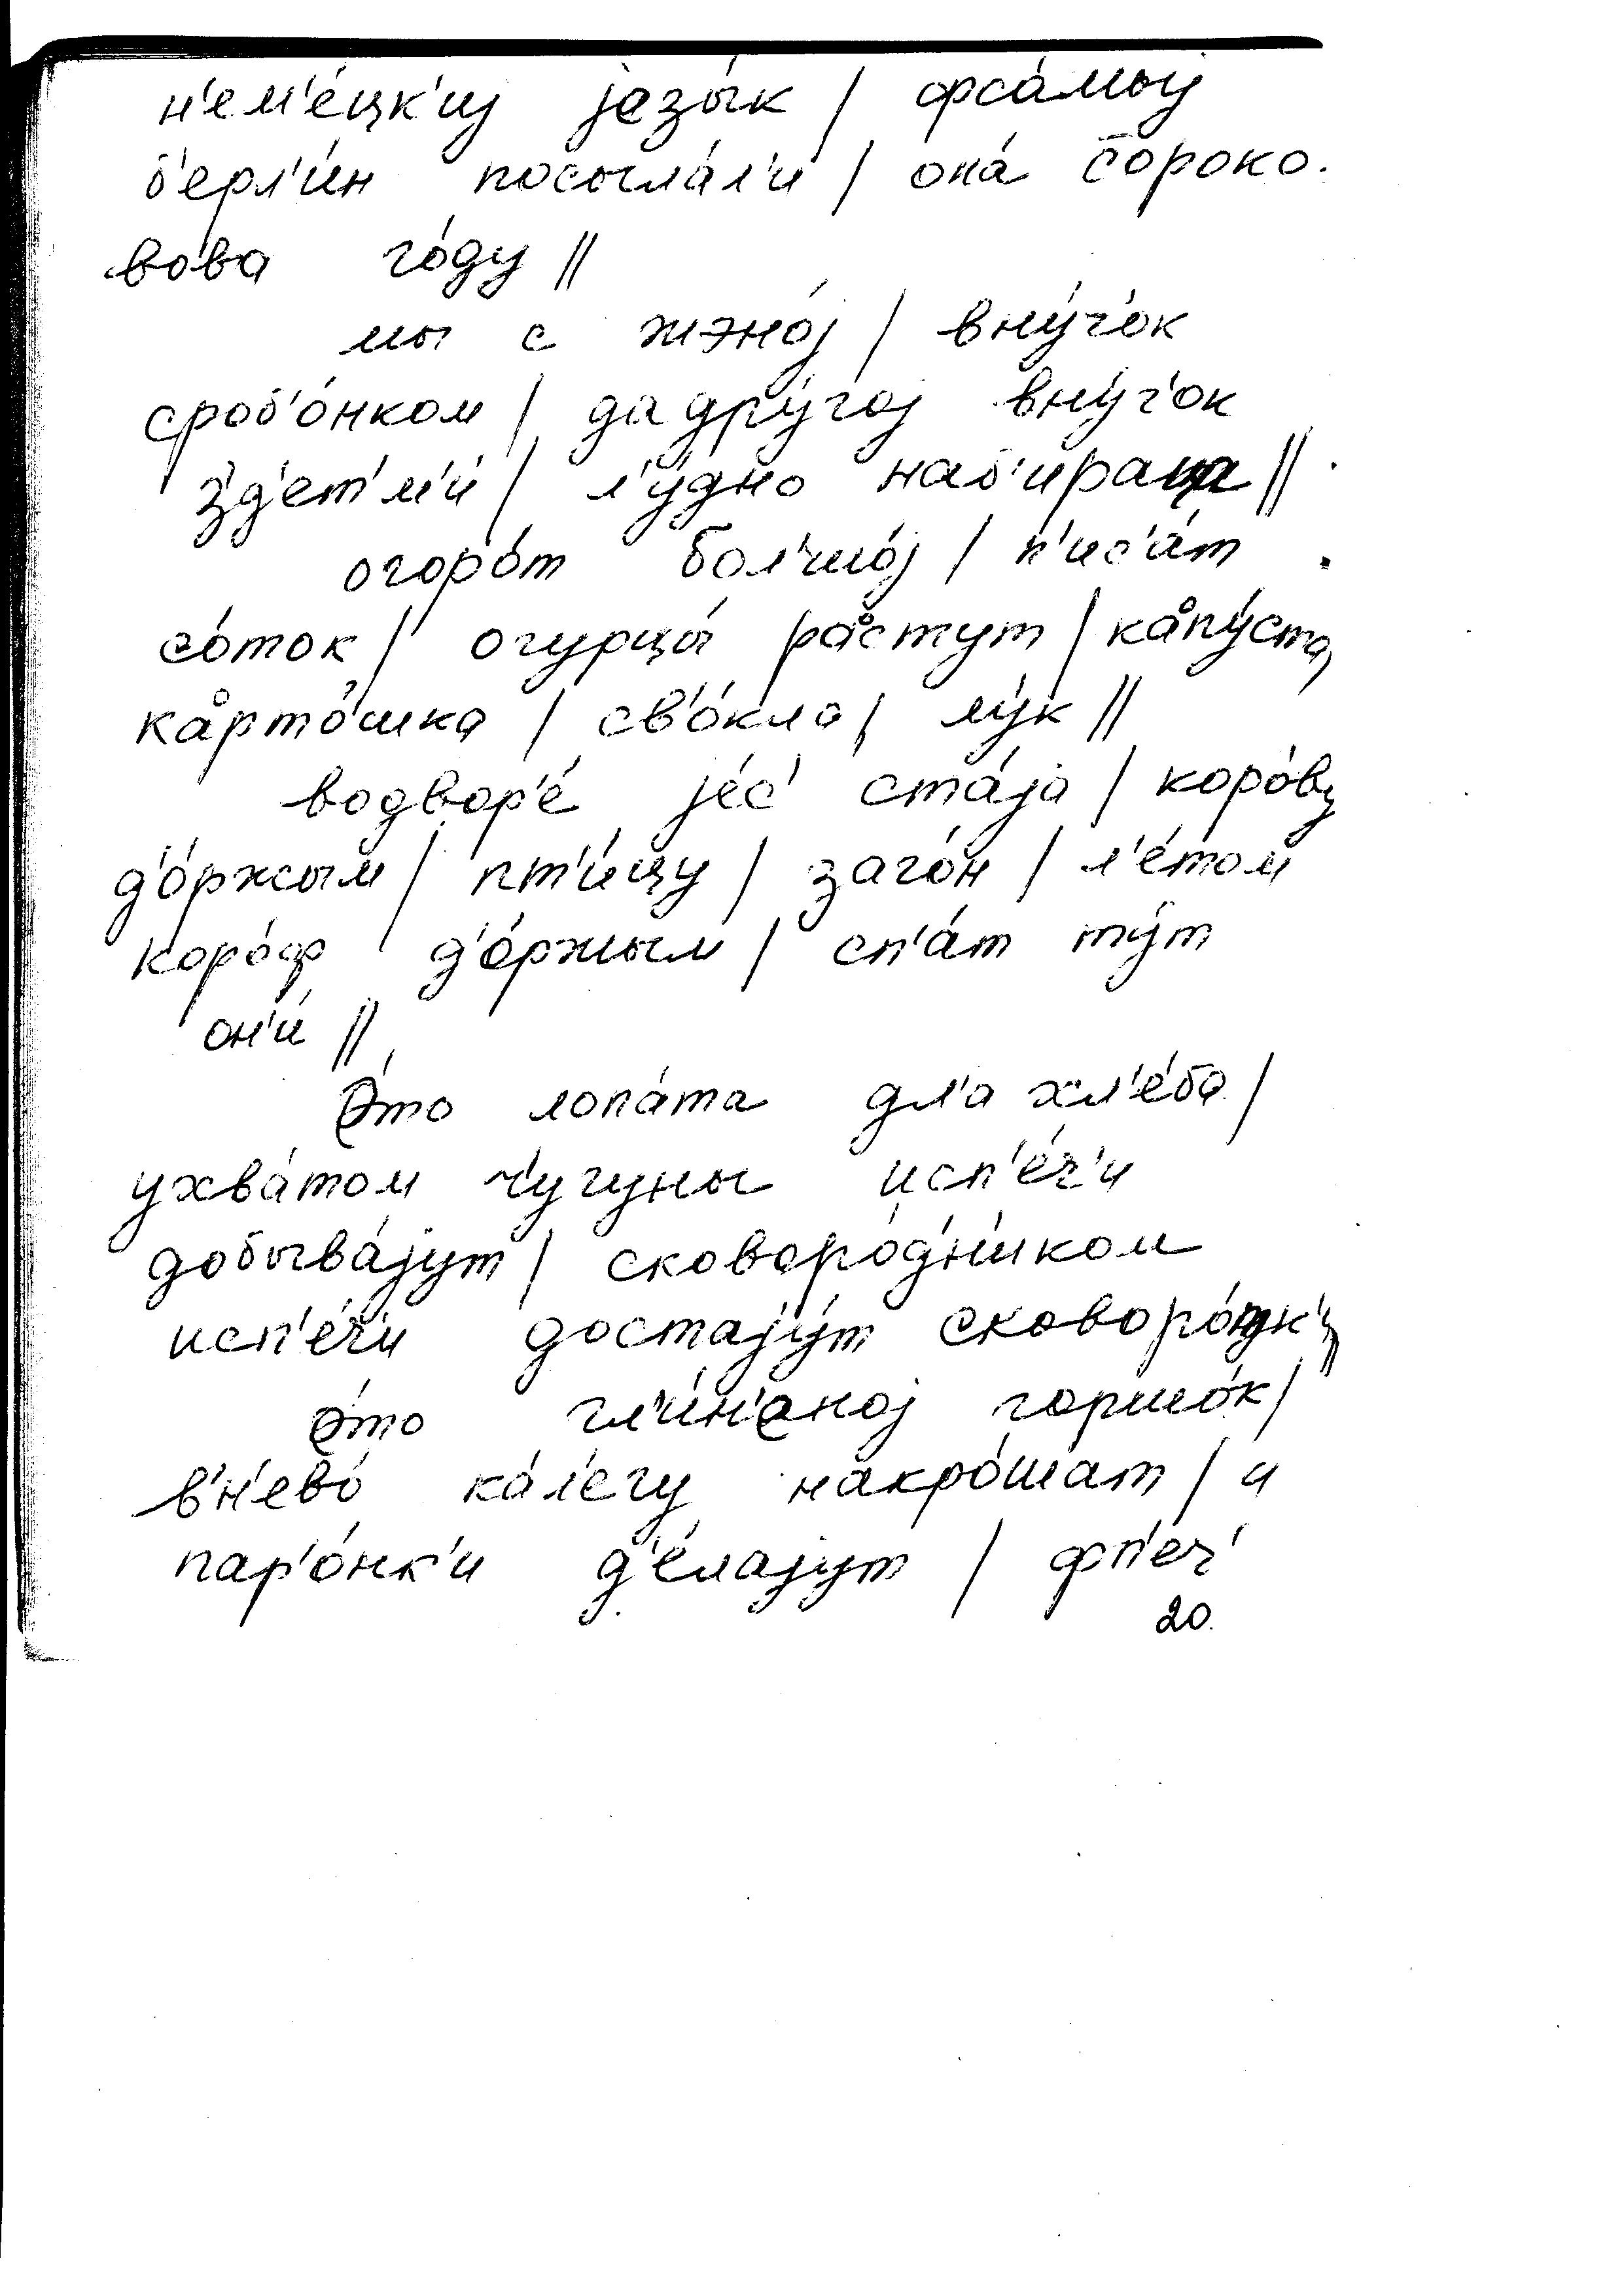 н'ем'е́цк'иј језы́к / фса́мыј
б'ерл'и́н посыла́л'и / она́ со̄роко-
во́ва го́ду //
мы с жэно́ј / вну́ч'ок
сроб'о́нком / да друго́ј вну́ч'ок
з'д'ет'м'и́ / л'у́дно наб'ираца //
огоро́т бол'шо́ј / п'ис'а́т
со́ток / огурцы́ ра̊стут / ка̊пу́ста,
ка̊рто́шка / св'о́кла / лу́к //
водвор'е́ је́с' ста́ја / коро́ву
д'о́ржым / пт'и́цу / заго́н / л'е́том
коро́ф д'о́ржым / сп'а́т ту́т
он'и́ //
э́то лопа́та дл'а хл'е́ба /
ухва́том ч'угуны исп'е́ч'и
добыва́јут / сковоро́д'н'иком
исп'е́ч'и достају́т сковоро́тк'и //
э́то гл'и́н'аној горшо́к /
в'н'ево́ ка́л'егу накро́шат / и
пар'о́нк'и д'е́лајут / фп'еч'
20.